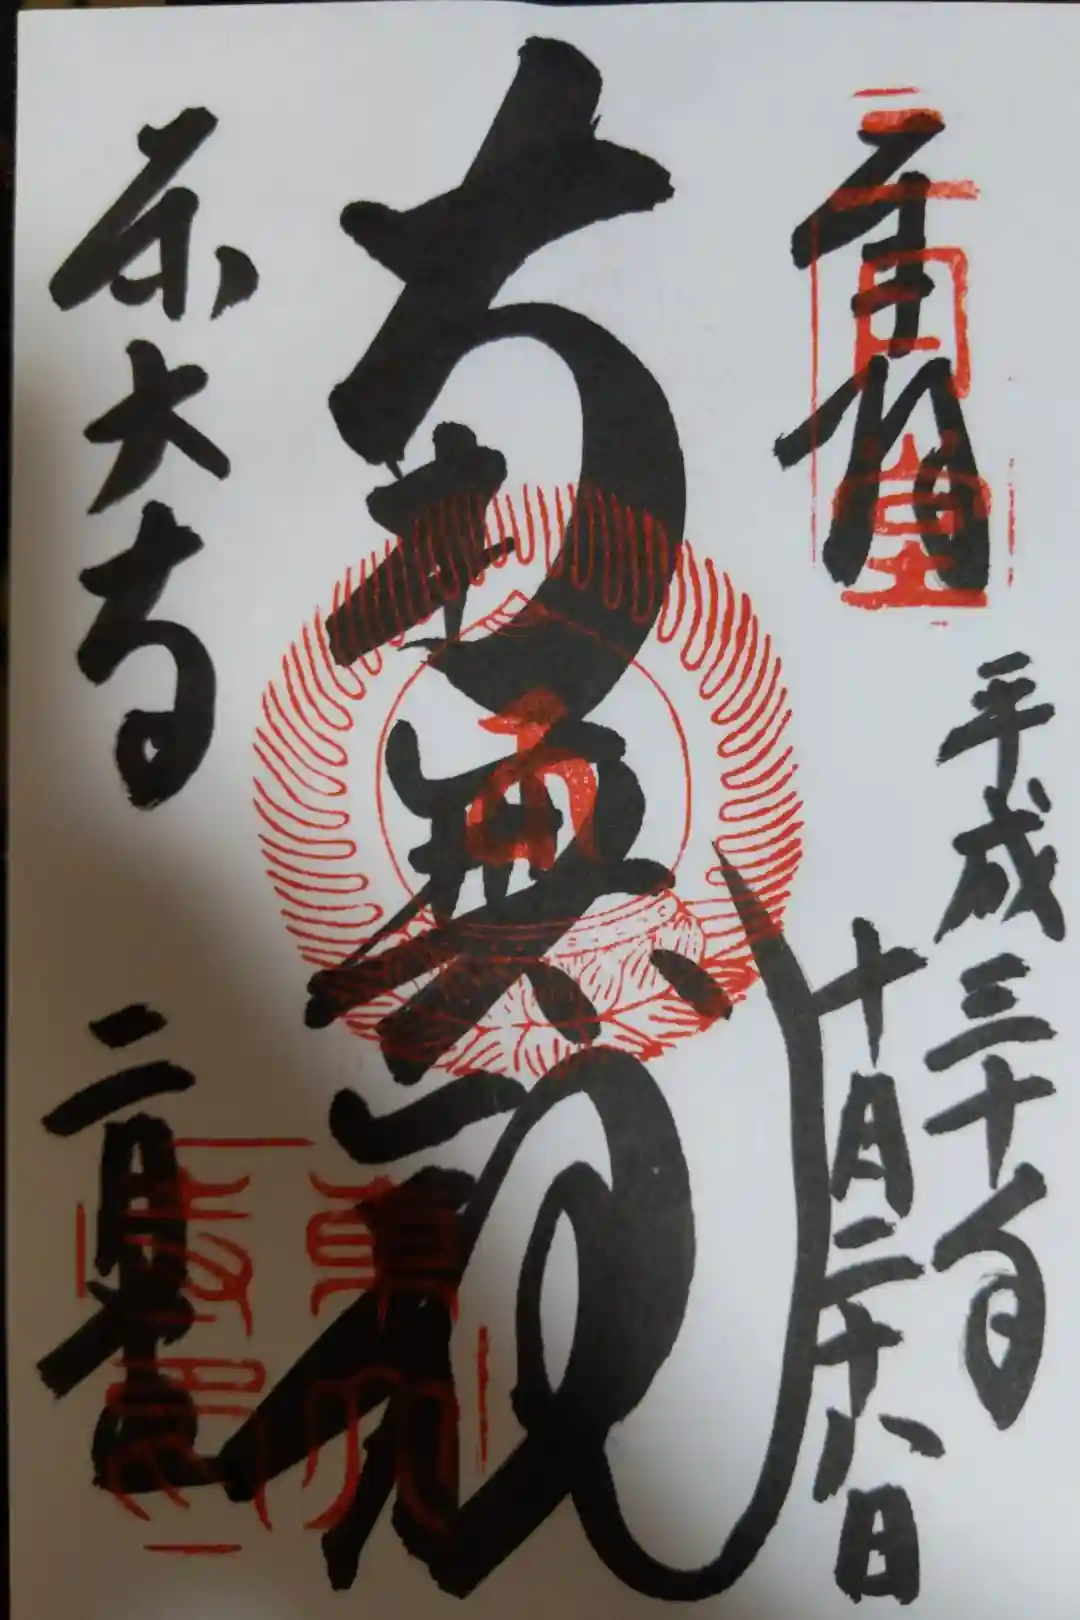 奉拝
二月堂
平成三十年
十月二十八日
南無観
東大寺
二月堂